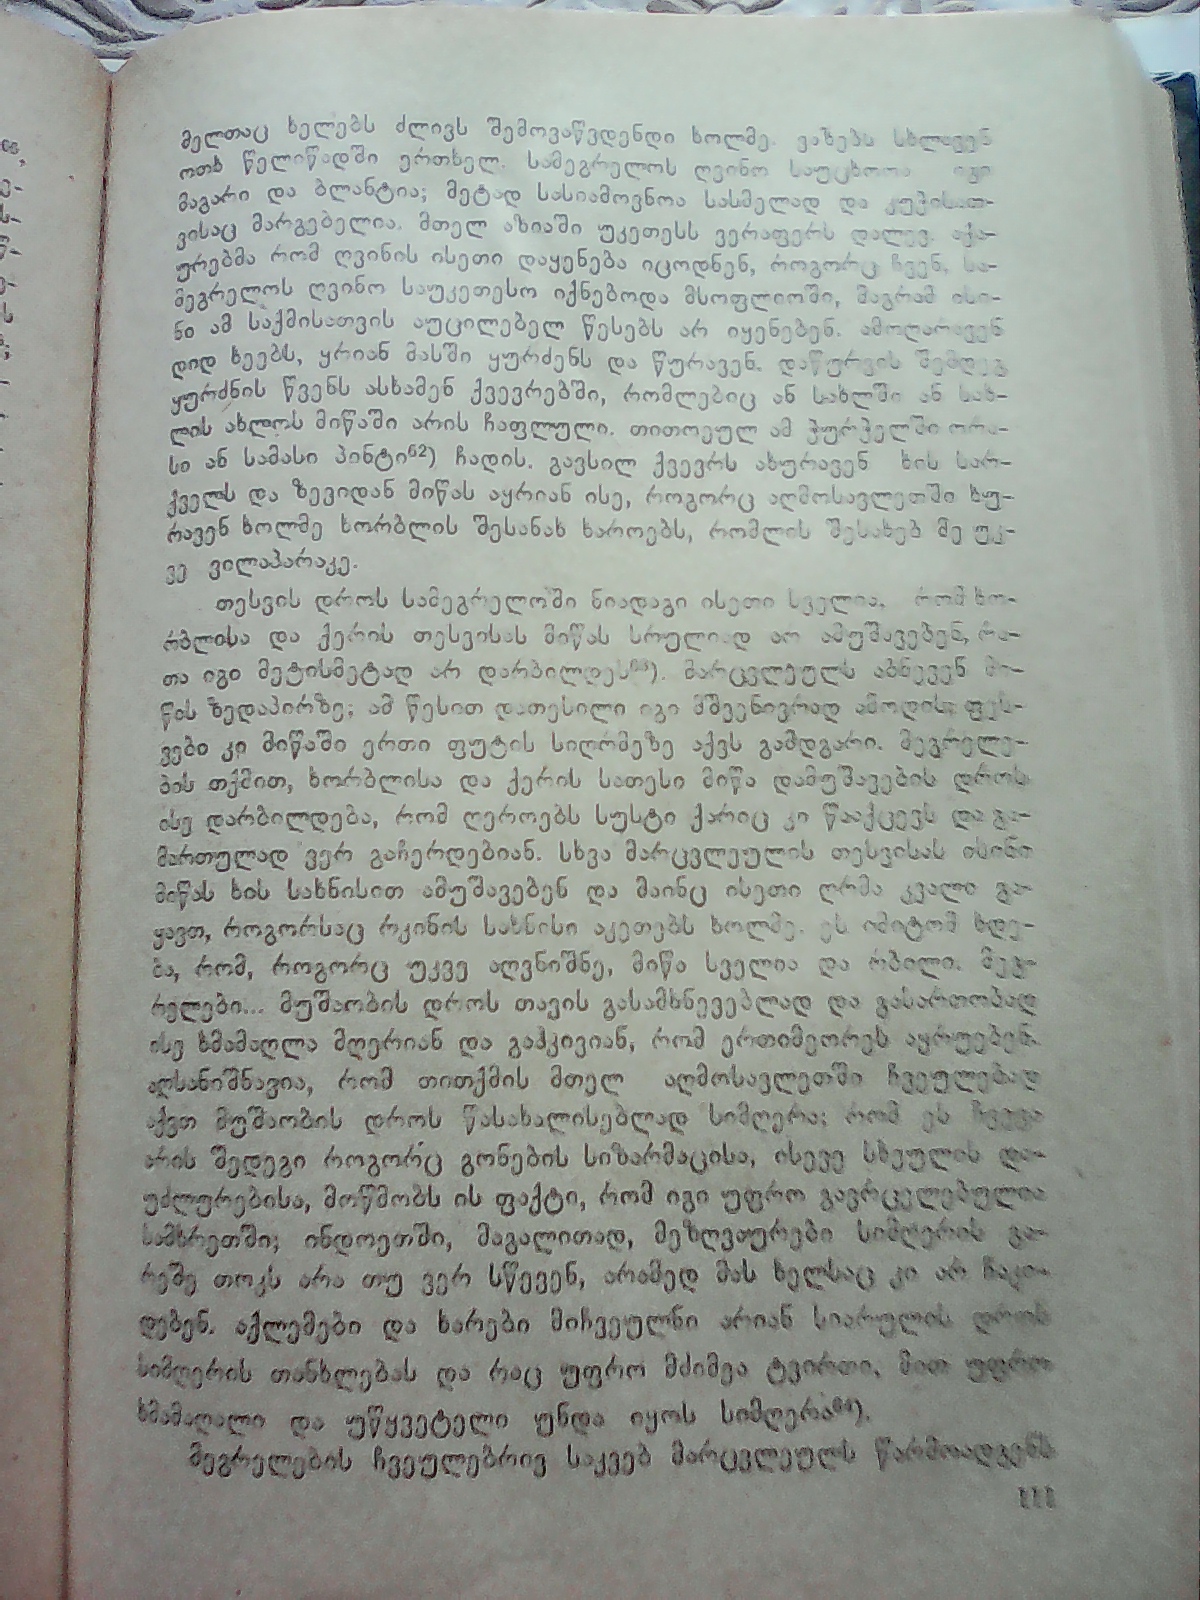 მელთაც ხელებს ძლივს შემოვაწვდენდი ხოლმე. ვაზებს სხლავენ
ოთხ წელიწადში ერთხელ. სამეგრელოს ღვინო საუცხოოა იგი
მაგარი და ბლანტია; მეტად სასიამოვნოა სასმელად და კუჭისათ-
ვისაც მარგებელია. მთელ აზიაში უკეთესს ვერაფერს დალევ. აქა-
ურებმა რომ ღვინის ისეთი დაყენება იცოდნენ, როგორც ჩვენ, სა-
მეგრელოს ღვინო საუკეთესო იქნებოდა მსოფლიოში, მაგრამ ისი-
ნი ამ საქმისათვის აუცილებელ წესებს არ იყენებენ. ამოღარავენ
დიდ ხეებს, ყრიან მასში ყურძენს და წურავენ. დაწურვის შემდეგ
ყურძნის წვენს ასხამენ ქვევრებში, რომლებიც ან სახლში ან სახ-
ლის ახლოს მიწაში არის ჩაფლული. თითოეულ ამ ჭურჭელში ორა-
სი ან სამასი პინტი⁶²) ჩადის. გავსილ ქვევრს ახურავენ ხის სარ-
ქველს და ზევიდან მიწას აყრიან ისე, როგორც აღმოსავლეთში ხუ-
რავენ ხოლმე ხორბლის შესანახ ხაროებს, რომლის შესახებ მე უკ-
ვე ვილაპარაკე.
თესვის დროს სამეგრელოში ნიადაგი ისეთი სველია, რომ ხო-
რბლისა და ქერის თესვისას მიწას სრულიად არ ამუშავებენ, რა-
თა იგი მეტისმეტად არ დარბილდეს⁶³). მარცვლეულს აბნევენ მი-
წის ზედაპირზე; ამ წესით დათესილი იგი მშვენივრად ამოდის; ფეს-
ვები კი მიწაში ერთი ფუტის სიღრმეზე აქვს გამდგარი. მეგრელე-
ბის თქმით, ხორბლისა და ქერის სათესი მიწა დამუშავების დროს
ისე დარბილდება, რომ ღეროებს სუსტი ქარიც კი წააქცევს და გა-
მართულად ვერ გაჩერდებიან. სხვა მარცვლეულის თესვისას ისინი
მიწას ხის სახნისით ამუშავებენ და მაინც ისეთი ღრმა კვალი გა-
ყავთ, როგორსაც რკინის სახნისი აკეთებს ხოლმე. ეს იმიტომ ხდე-
ბა, რომ, როგორც უკვე აღვნიშნე, მიწა სველია და რბილი. მეგ-
რელები... მუშაობის დროს თავის გასამხნევებლად და გასართობად
ისე ხმამაღლა მღერიან და გაჰკივიან, რომ ერთიმეორეს აყრუებენ.
აღსანიშნავია, რომ თითქმის მთელ აღმოსავლეთში ჩვეულებად
აქვთ მუშაობის დროს წასახალისებლად სიმღერა; რომ ეს ჩვევა
არის შედეგი როგორც გონების სიზარმაცისა, ისევე სხეულის და-
უძლურებისა, მოწმობს ის ფაქტი, რომ იგი უფრო გავრცელებულია
სამხრეთში; ინდოეთში, მაგალითად, მეზღვაურები სიმღერის გა-
რეშე თოკს არა თუ ვერ სწევენ, არამედ მას ხელსაც კი არ ჩაკი-
დებენ. აქლემები და ხარები მიჩვეულნი არიან სიარულის დროს
სიმღერის თანხლებას და რაც უფრო მძიმეა ტვირთი, მით უფრო
ხმამაღალი და უწყვეტელი უნდა იყოს სიმღერა⁶⁴).
მეგრელების ჩვეულებრივ საკვებ მარცვლეულს წარმოადგენს
111